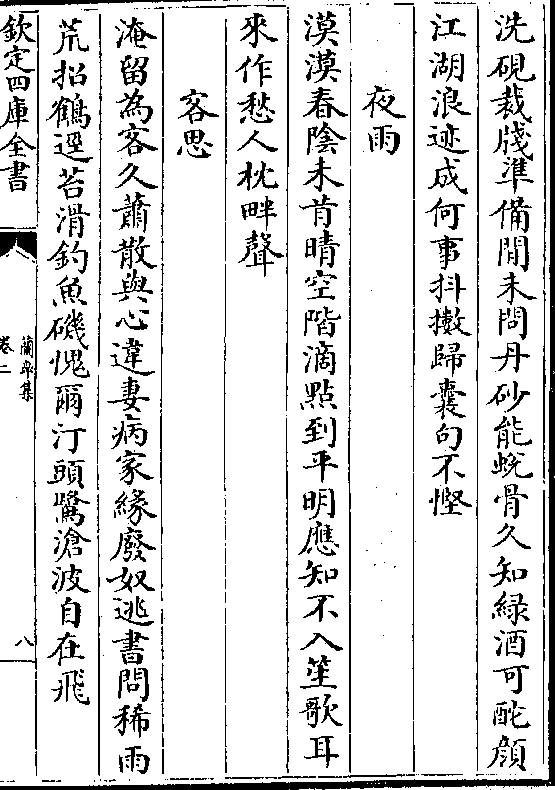 洗硯裁牋準備閒未問丹砂能蛻骨久知緑酒可酡顔
江湖浪迹成何事抖擻歸囊句不慳
夜雨
漠漠春陰未肯晴空階滴點到平明應知不入笙歌耳
來作愁人枕畔聲
客思
淹留為客久蕭散與心違妻病家緣廢奴逃書問稀雨
荒招鶴逕苔滑釣魚磯愧爾汀頭鷺滄波自在飛
欽定四庫全書
蘭皋集
卷二
八